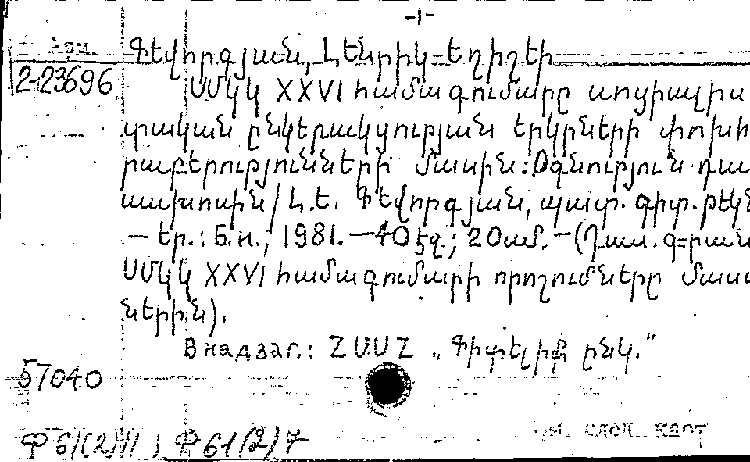 -1-
Գեվորգյան, Լենրիկ Եղիշեի
2-23696
ՍՄԿԿ XXVI համագումարը սոցիալիս
տական ընկերակցության երկրների փոխհ
րաբերությունների մասին: Օգնություն դա
սախոսին/Լ.Ե. Գեվորգյան, պատ. գիտ. թեկն
— Եր.: Б.и.; 1981. — 40 էջ.; 20սմ. — (Դաս. գ=րան
ՍՄԿԿ XXVI համագումարի որոշումները մասս
ներին).
В надзаг.: ՀՍՍՀ „Գիտելիք ընկ."
57040
Ф 61(2)7
см. след. карт